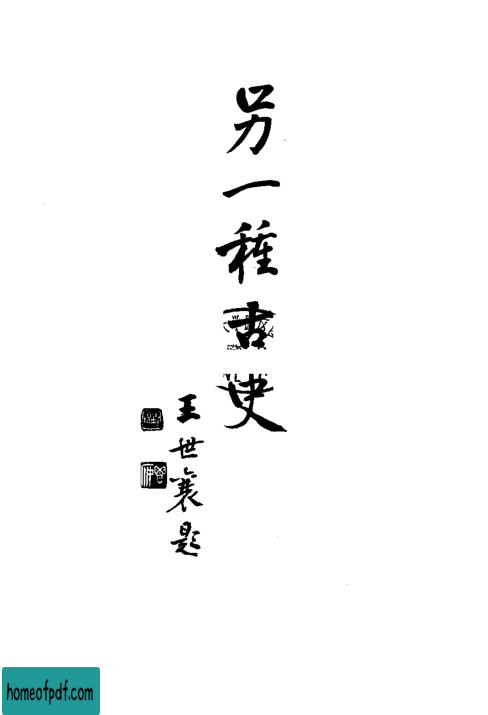 另一種古史
王世襄題
homeofpdf.com